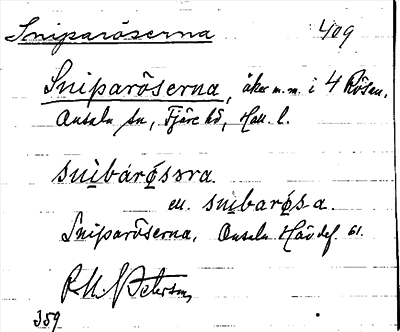 Sniparöserna 409
Sniparöserna, åker m.m. i 4 Rösen.
Onsala sn, Fjäre hd, Hall. l.
snìbarø̀səra
el. snìbarø̀s-a.
Sniparöserna, Onsala Hävdef. 61.
Petersson
359